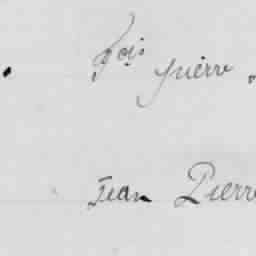 fois
pierre
Jean Pierre